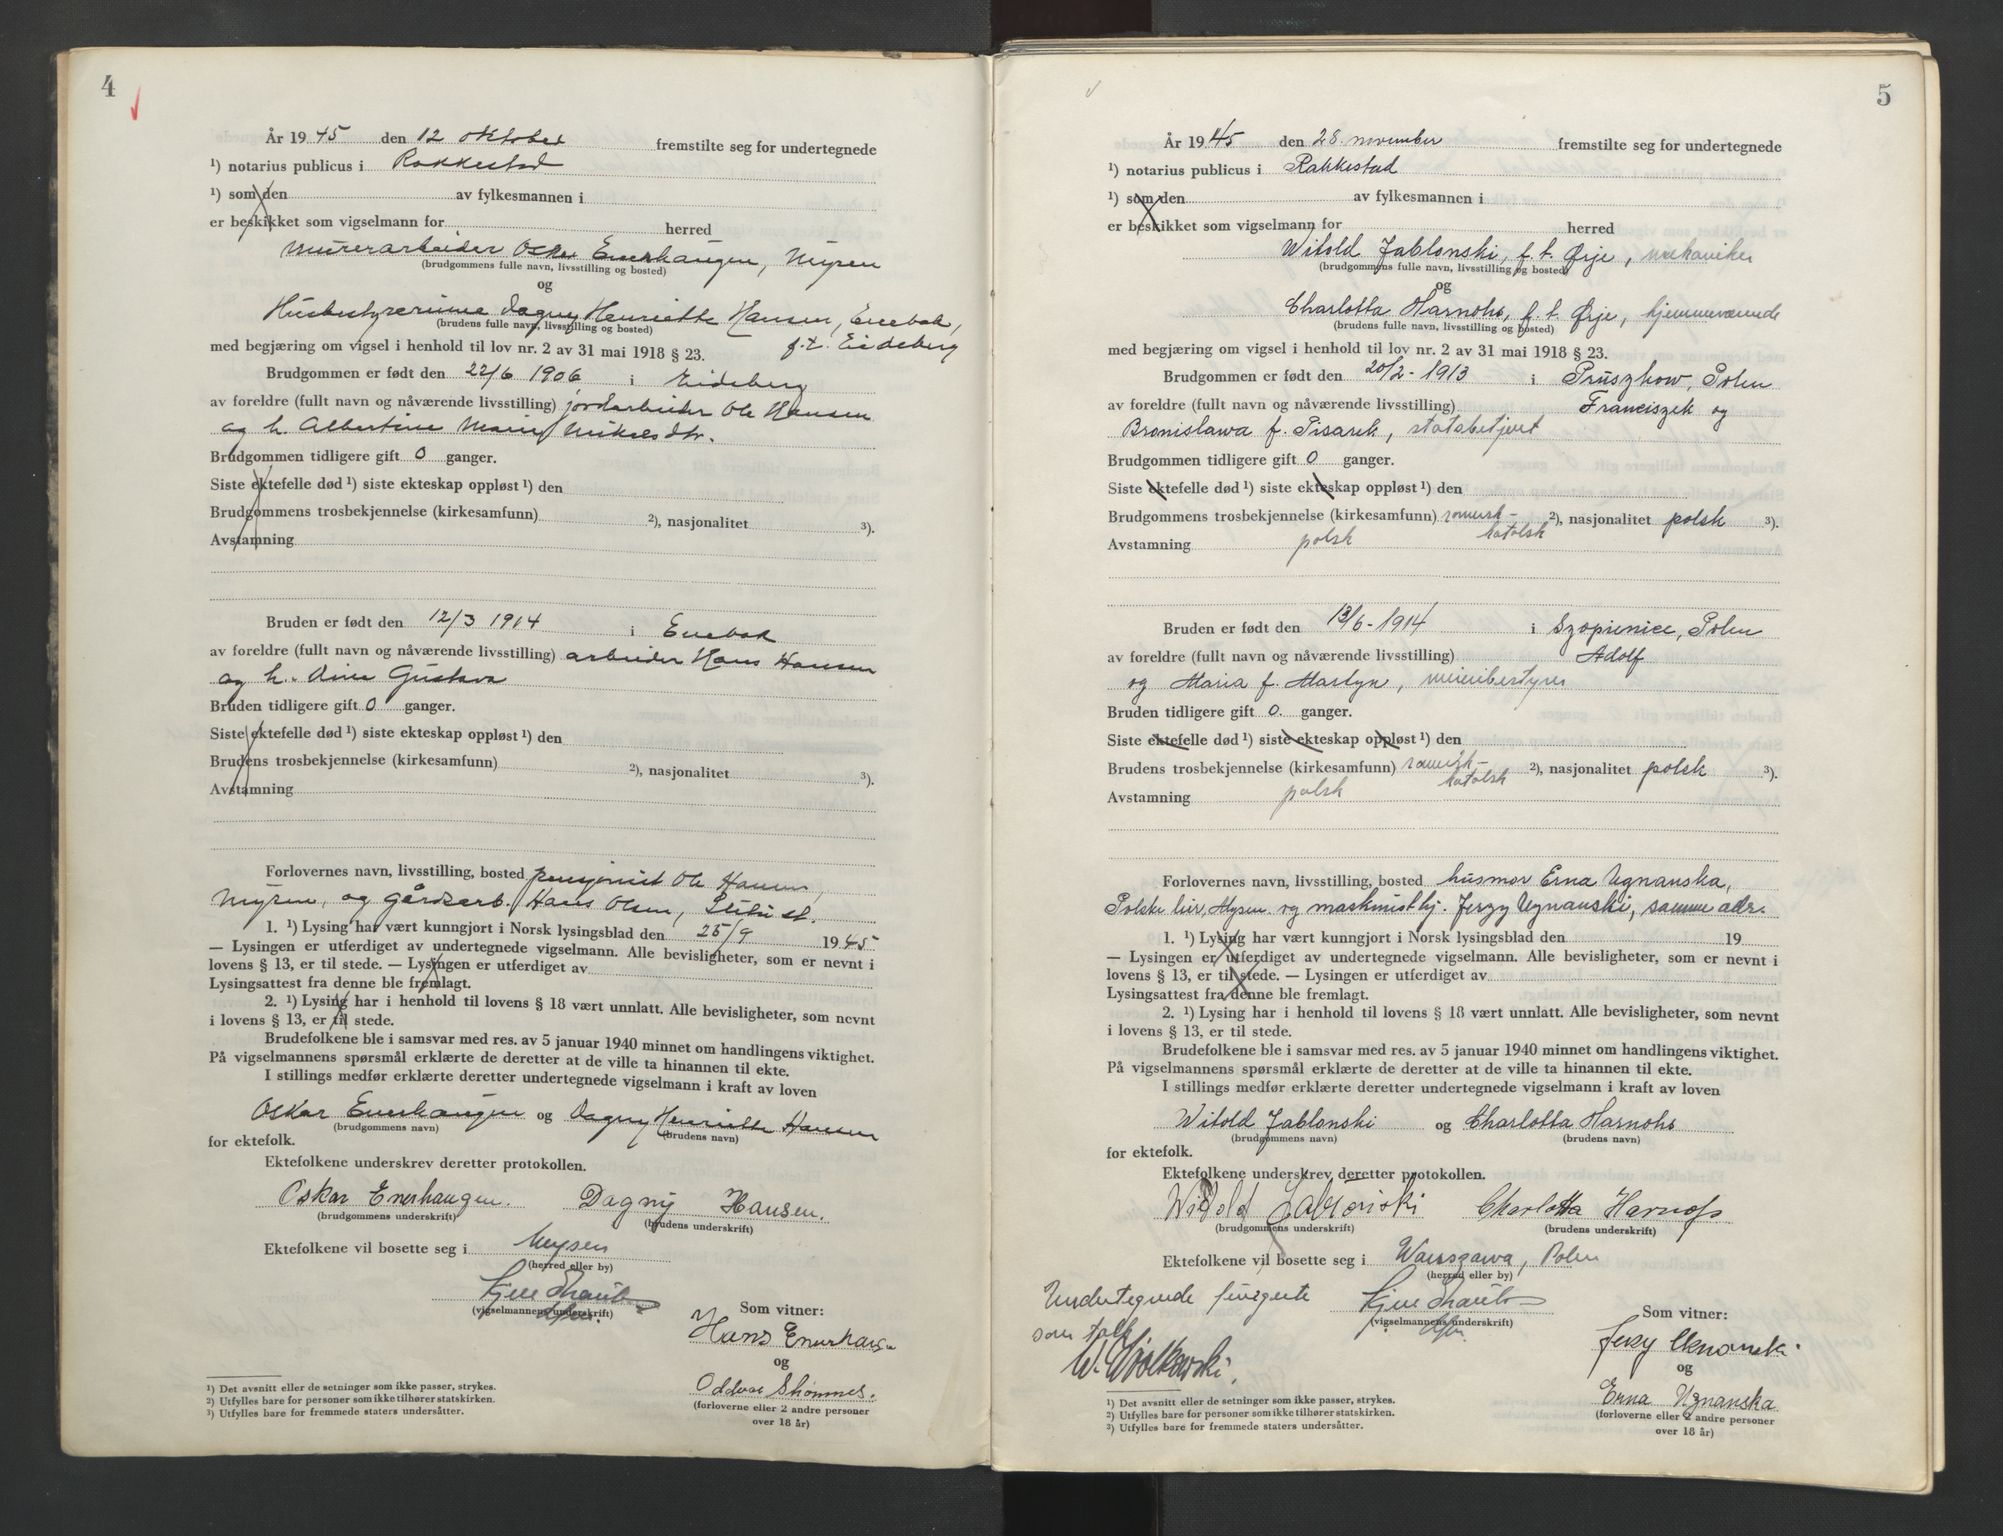 4
År 1945 den 12 oktober fremstilte seg for undertegnede
¹) notarius publicus i Rakkestad
¹) som den av fylkesmannen i
er beskikket som vigselmann for herred
murerarbeider Oskar Enerhaugen, Mysen
(brudgommens fulle navn, livsstilling og bosted)
og
Husbestyrerinne Dagny Henriette Hansen, Enebak,
(brudens fulle navn, livsstilling og bosted)
f.t. Eidsberg
med begjæring om vigsel i henhold til lov nr. 2 av 31 mai 1918 § 23.
Brudgommen er født den 22/6 1906 i Eidsberg
av foreldre (fullt navn og nåværende livsstilling) jordarbeider Ole Hansen
og h. Albertine Marie Mikelsdtr.
Brudgommen tidligere gift 0 ganger.
Siste ektefelle død ¹) siste ekteskap oppløst ¹) den
Brudgommens trosbekjennelse (kirkesamfunn) ²), nasjonalitet ³).
Avstamning
Bruden er født den 12/3 1914 i Enebak
av foreldre (fullt navn og nåværende livsstilling) arbeider Hans Hansen
og h. Gustava
Bruden tidligere gift 0 ganger.
Siste ektefelle død ¹) siste ekteskap oppløst ¹) den
Brudens trosbekjennelse (kirkesamfunn) ²), nasjonalitet ³).
Avstamning
Forlovernes navn, livsstilling, bosted pensjonist Ole Hansen,
Mysen, og gårdsarb. Hans Olsen, st.
1. ¹) Lysing har vært kunngjort i Norsk lysingsblad den 25/9 1945
— Lysingen er utferdiget av undertegnede vigselmann. Alle bevisligheter, som er nevnt i
lovens § 13, er til stede. — Lysingen er utferdiget av
Lysingsattest fra denne ble fremlagt.
2. ¹) Lysing har i henhold til lovens § 18 vært unnlatt. Alle bevisligheter, som nevnt
i lovens § 13, er til stede.
Brudefolkene ble i samsvar med res. av 5 januar 1940 minnet om handlingens viktighet.
På vigselmannens spørsmål erklærte de deretter at de ville ta hinannen til ekte.
I stillings medfør erklærte deretter undertegnede vigselmann i kraft av loven
Oskar Enerhaugen og Dagny Henriette Hansen
(brudgommens navn) (brudens navn)
for ektefolk.
Ektefolkene underskrev deretter protokollen.
Oskar Enerhaugen. Dagny Hansen.
(brudgommens underskrift) (brudens underskrift)
Ektefolkene vil bosette seg i Mysen
(herred eller by)
(vigselmannens underskrift)
Som vitner:
Hans Enerhaugen
og
Oddvar Skømmes.
(forloverne eller 2 andre personer
over 18 år)
¹) Det avsnitt eller de setninger som ikke passer, strykes.
²) Utfylles bare for personer som ikke tilhører statskirken.
³) Utfylles bare for fremmede staters undersåtter.
5
År 1945 den 28. november fremstilte seg for undertegnede
¹) notarius publicus i Rakkestad
¹) som den av fylkesmannen i
er beskikket som vigselmann for herred
Witold Jablonski, f. t. Ørje, mekaniker
(brudgommens fulle navn, livsstilling og bosted)
og
Charlotta Harnohs, f. t. Ørje, hjemmeværende
(brudens fulle navn, livsstilling og bosted)
med begjæring om vigsel i henhold til lov nr. 2 av 31 mai 1918 § 23.
Brudgommen er født den 20/2-1913 i Pruszkow, Polen
av foreldre (fullt navn og nåværende livsstilling) Franciszek og
Bronislawa f. Pisarek, statsbetjent
Brudgommen tidligere gift 0 ganger.
Siste ektefelle død ¹) siste ekteskap oppløst ¹) den
Brudgommens trosbekjennelse (kirkesamfunn) romersk-katolsk ²), nasjonalitet polsk ³).
Avstamning polsk
Bruden er født den 13/6-1914 i Szopienice, Polen
av foreldre (fullt navn og nåværende livsstilling) Adolf
og Maria f. Martyn, meieribestyrer
Bruden tidligere gift 0. ganger.
Siste ektefelle død ¹) siste ekteskap oppløst ¹) den
Brudens trosbekjennelse (kirkesamfunn) romersk-katolsk ²), nasjonalitet polsk ³).
Avstamning polsk
Forlovernes navn, livsstilling, bosted husmor Erna Uznanska,
Polske leir, Mysen. og maskinist hj. Jerzy Uznanski, samme adr.
1. ¹) Lysing har vært kunngjort i Norsk lysingsblad den 19
— Lysingen er utferdiget av undertegnede vigselmann. Alle bevisligheter, som er nevnt i
lovens § 13, er til stede. — Lysingen er utferdiget av
Lysingsattest fra denne ble fremlagt.
2. ¹) Lysing har i henhold til lovens § 18 vært unnlatt. Alle bevisligheter, som nevnt
i lovens § 13, er til stede.
Brudefolkene ble i samsvar med res. av 5 januar 1940 minnet om handlingens viktighet.
På vigselmannens spørsmål erklærte de deretter at de ville ta hinannen til ekte.
I stillings medfør erklærte deretter undertegnede vigselmann i kraft av loven
Witold Jablonski og Charlotta Harnohs
(brudgommens navn) (brudens navn)
for ektefolk.
Ektefolkene underskrev deretter protokollen.
Witold Jabłoński Charlotta Harnoß
(brudgommens underskrift) (brudens underskrift)
Ektefolkene vil bosette seg i Warszawa, Polen
(herred eller by)
Undertegnede fungerte
som tolk
W. Wolkowski.
(vigselmannens underskrift)
Som vitner:
Jerzy Uznanski.
og
Erna Uznanska
(forloverne eller 2 andre personer
over 18 år)
¹) Det avsnitt eller de setninger som ikke passer, strykes.
²) Utfylles bare for personer som ikke tilhører statskirken.
³) Utfylles bare for fremmede staters undersåtter.